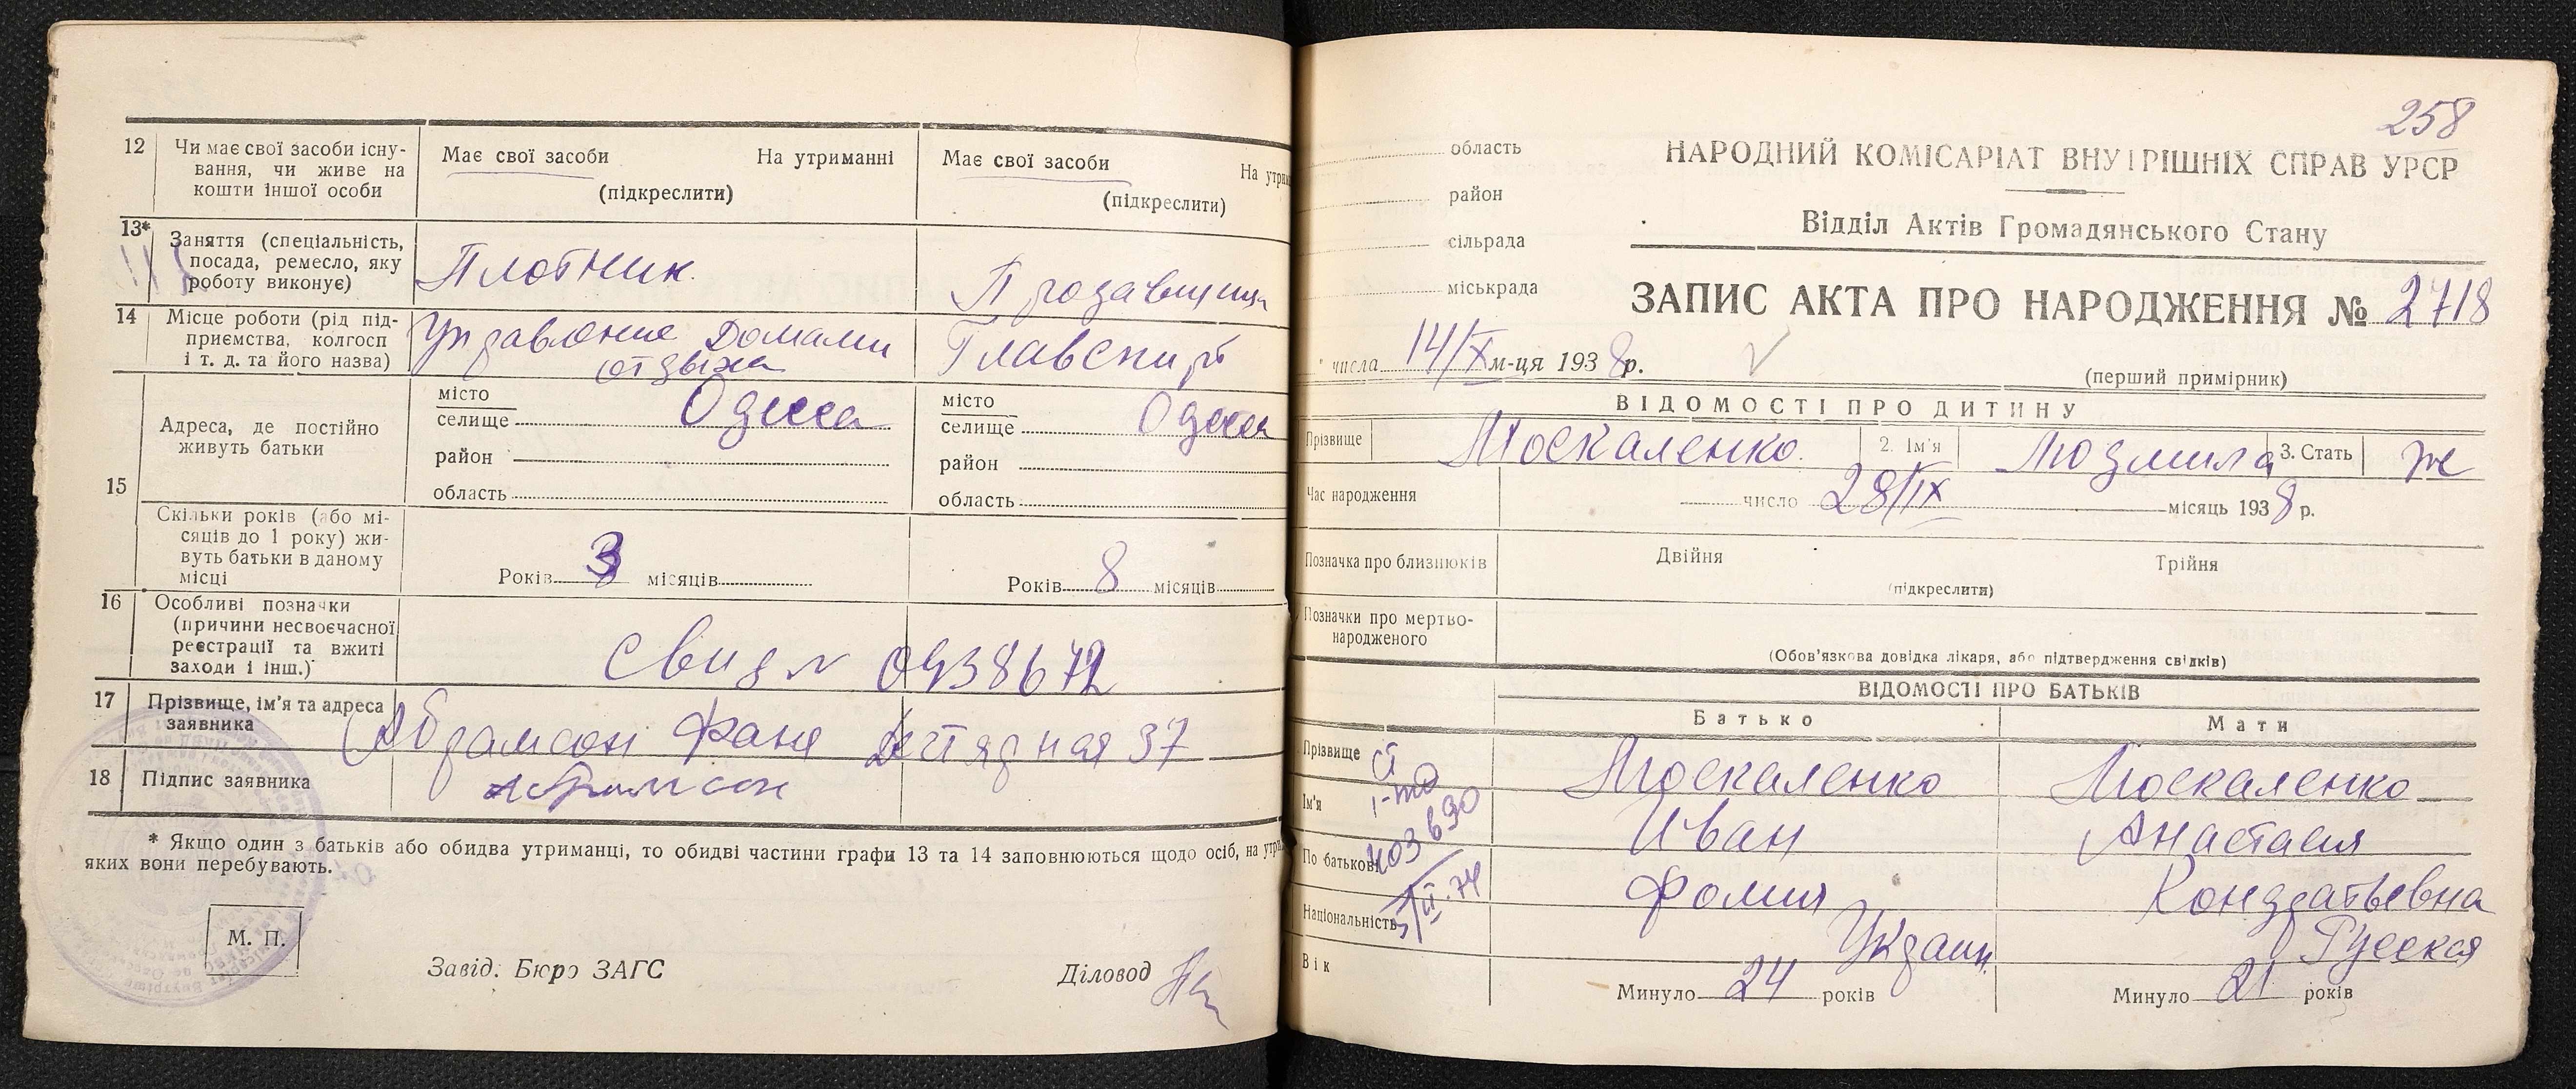 12 Чи має свої засоби існу-
вання, чи живе на
кошти іншої особи
Має свої засоби На утриманні
(підкреслити)
Має свої засоби На утрим
(підкреслити)
13* Заняття (спеціальність,
посада, ремесло, яку
роботу виконує)
Плотник
Продавщица
14 Місце роботи (рід під-
приємства, колгосп
і т. д. та його назва)
Управление Домами
отдыха
Главспирт
15 Адреса, де постійно
живуть батьки
місто
селище Одесса
район
область
місто
селище Одесса
район
область
Скільки років (або мі-
сяців до 1 року) жи-
вуть батьки в даному
місці
Років 3 місяців
Років 8 місяців
16 Особливі позначки
(причини несвоєчасної
реєстрації та вжиті
заходи і інш.)
Свид N
17 Прізвище, ім'я та адреса
заявника
Абрамсон Фаня 37
18 Підпис заявника
Абрамсон
* Якщо один з батьків або обидва утриманці, то обидві частини графи 13 та 14 заповнюються щодо осіб, на утри
яких вони перебувають.
М. П.
Завід. Бюро ЗАГС
Діловод
258
область
район
сільрада
міськрада
НАРОДНИЙ КОМІСАРІАТ ВНУТРІШНІХ СПРАВ УРСР
Відділ Актів Громадянського Стану
ЗАПИС АКТА ПРО НАРОДЖЕННЯ № 2718
числа 14/X м-ця 1938р.
(перший примірник)
ВІДОМОСТІ ПРО ДИТИНУ
Прізвище Москаленко 2. Ім'я Людмила 3. Стать же
Час народження число 28/IX місяць 1938 р.
Позначка про близнюків Двійня Трійня
(підкреслити)
Позначки про мертво-
народженого
(Обов'язкова довідка лікаря, або підтвердження свідків)
ВІДОМОСТІ ПРО БАТЬКІВ
Батько Мати
Прізвище Москаленко Москаленко
Ім'я Иван Анастасия
По батькові Фомич Кондратьевна
Національність Украин. Русская
Вік Минуло 24 років Минуло 21 років